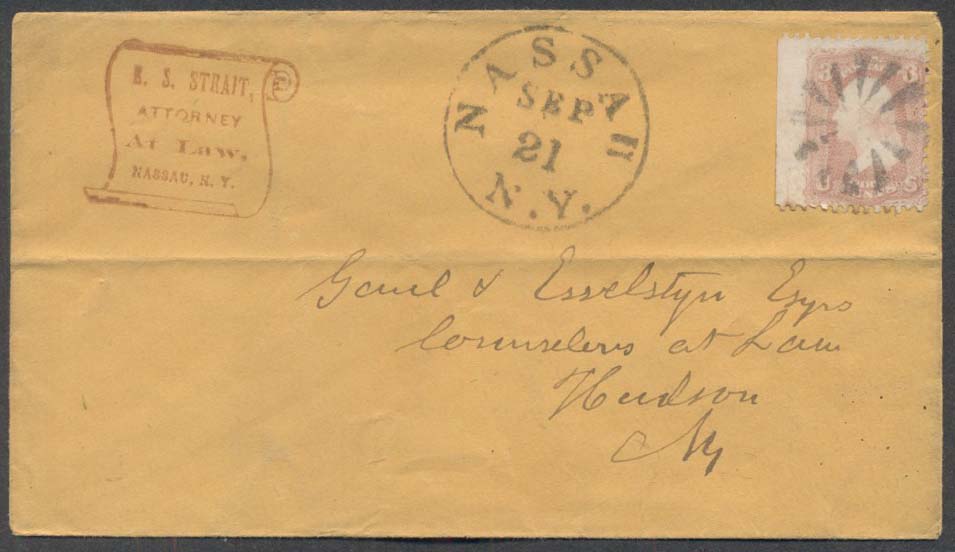 E. S. STRAIT,
ATTORNEY
At Law,
NASSAU, N. Y.
NASSAU
SEP
21
N.Y.
3 3
U S
Gaul & Esselstyn Esqrs
Counselers at Law
Hudson
NY